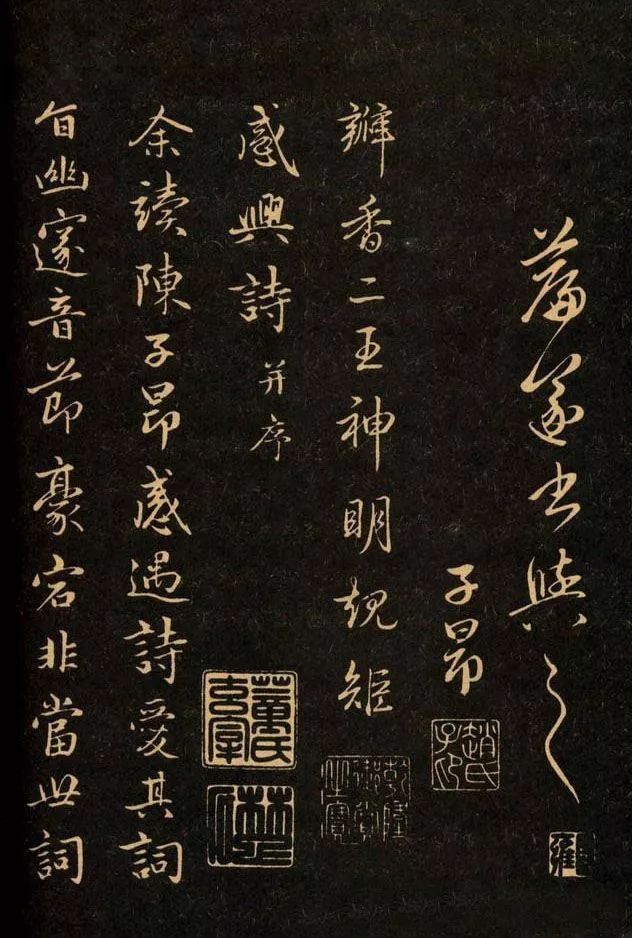 篇遂書與之
子昂
趙氏子昂
瓣香二王神明規矩
感興詩并序
董氏玄宰
余讀陳子昂感遇詩愛其詞
旨幽邃音節豪宕非當世詞